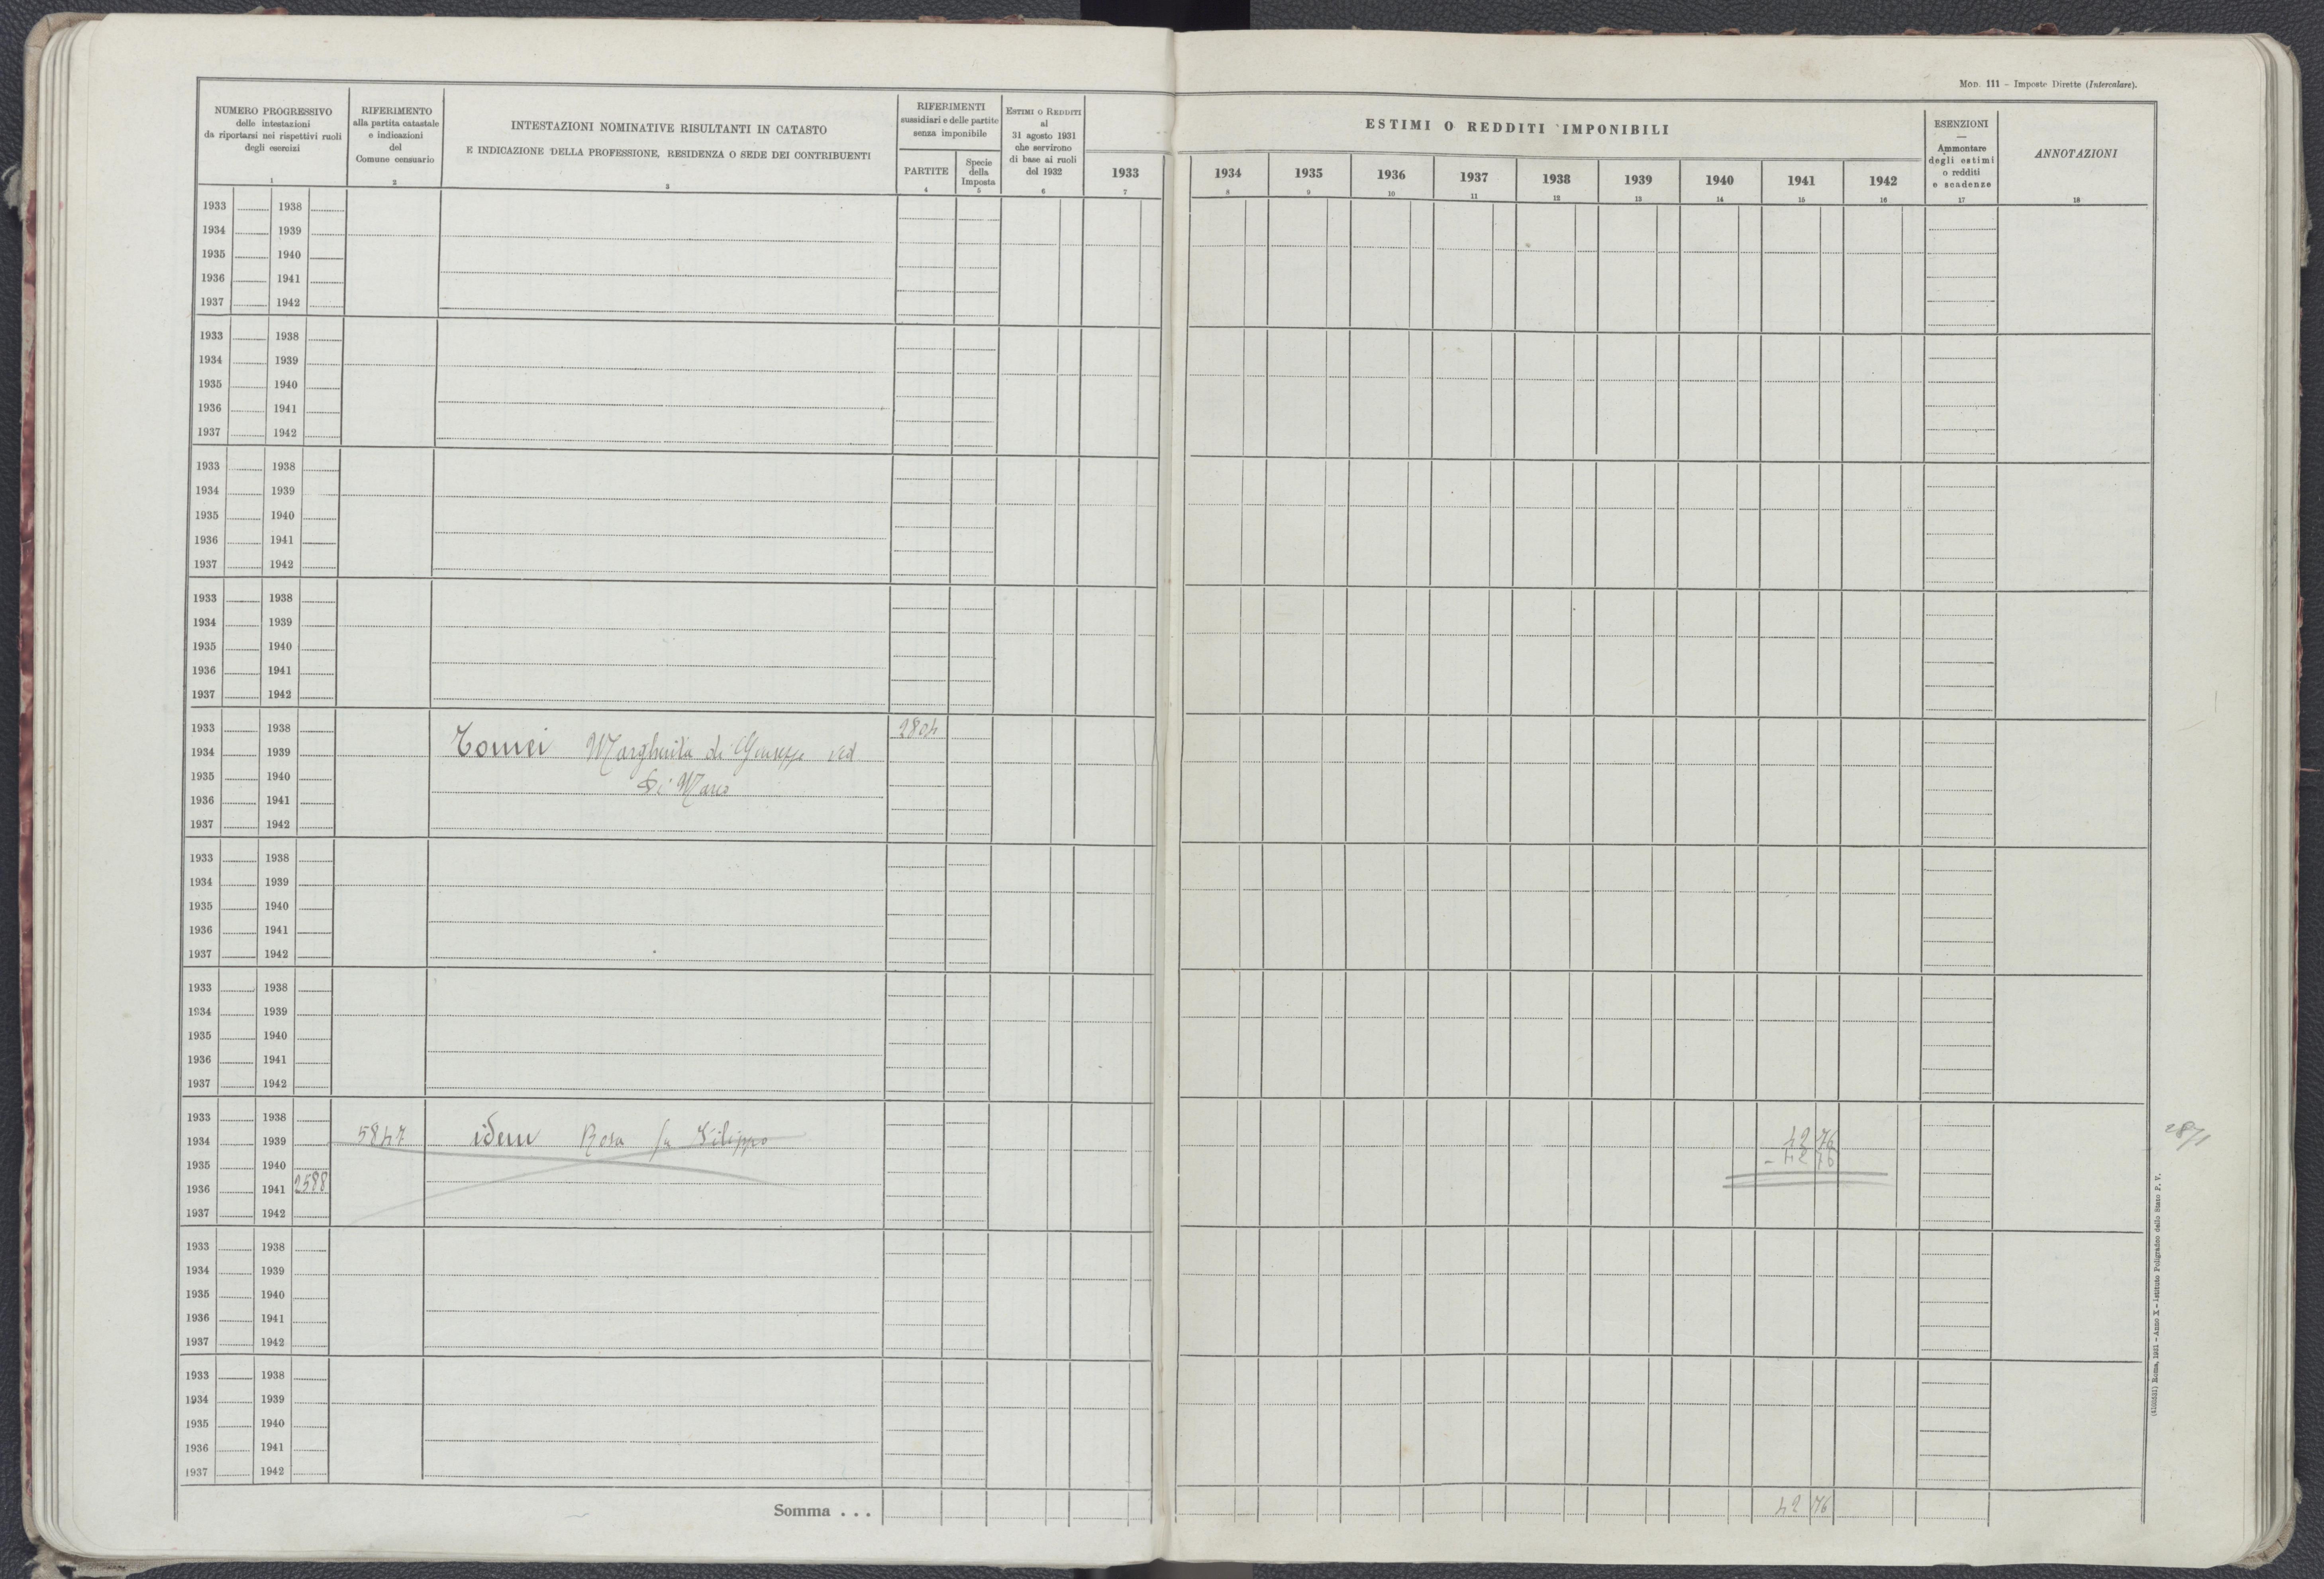 Mod. 111 - Imposte Dirette (Intercalare).
NUMERO PROGRESSIVO
delle intestazioni
da riportarsi nei rispettivi ruoli
degli esercizi
1
RIFERIMENTO
alla partita catastale
e indicazioni
del
Comune censuario
2
INTESTAZIONI NOMINATIVE RISULTANTI IN CATASTO
E INDICAZIONE DELLA PROFESSIONE, RESIDENZA O SEDE DEI CONTRIBUENTI
3
RIFERIMENTI
sussidiari e delle partite
senza imponibile
PARTITE
4
Specie
della
Imposta
5
Estimi o Redditi
al
31 agosto 1931
che servirono
di base ai ruoli
del 1932
6
ESTIMI O REDDITI IMPONIBILI
1933 1934 1935 1936 1937 1938 1939 1940 1941 1942
7 8 9 10 11 12 13 14 15 16
ESENZIONI
—
Ammontare
degli estimi
o redditi
e scadenze
17
ANNOTAZIONI
18
1933 1938
1934 1939
1935 1940
1936 1941
1937 1942
1933 1938
1934 1939
1935 1940
1936 1941
1937 1942
1933 1938
1934 1939
1935 1940
1936 1941
1937 1942
1933 1938
1934 1939
1935 1940
1936 1941
1937 1942
1933 1938 2804
1934 1939 Tomei Margherita di Giuseppe ved
1935 1940 Di Marco
1936 1941
1937 1942
1933 1938
1934 1939
1935 1940
1936 1941
1937 1942
1933 1938
1934 1939
1935 1940
1936 1941
1937 1942
1933 1938
1934 1939 5847 idem Rosa fu Filippo 42 76 28/1
1935 1940 - 42 76
1936 1941 2588
1937 1942
1933 1938
1934 1939
1935 1940
1936 1941
1937 1942
1933 1938
1934 1939
1935 1940
1936 1941
1937 1942
Somma . . . 42 76
Roma, 1931 - Anno X - Istituto Poligrafico dello Stato P. V.